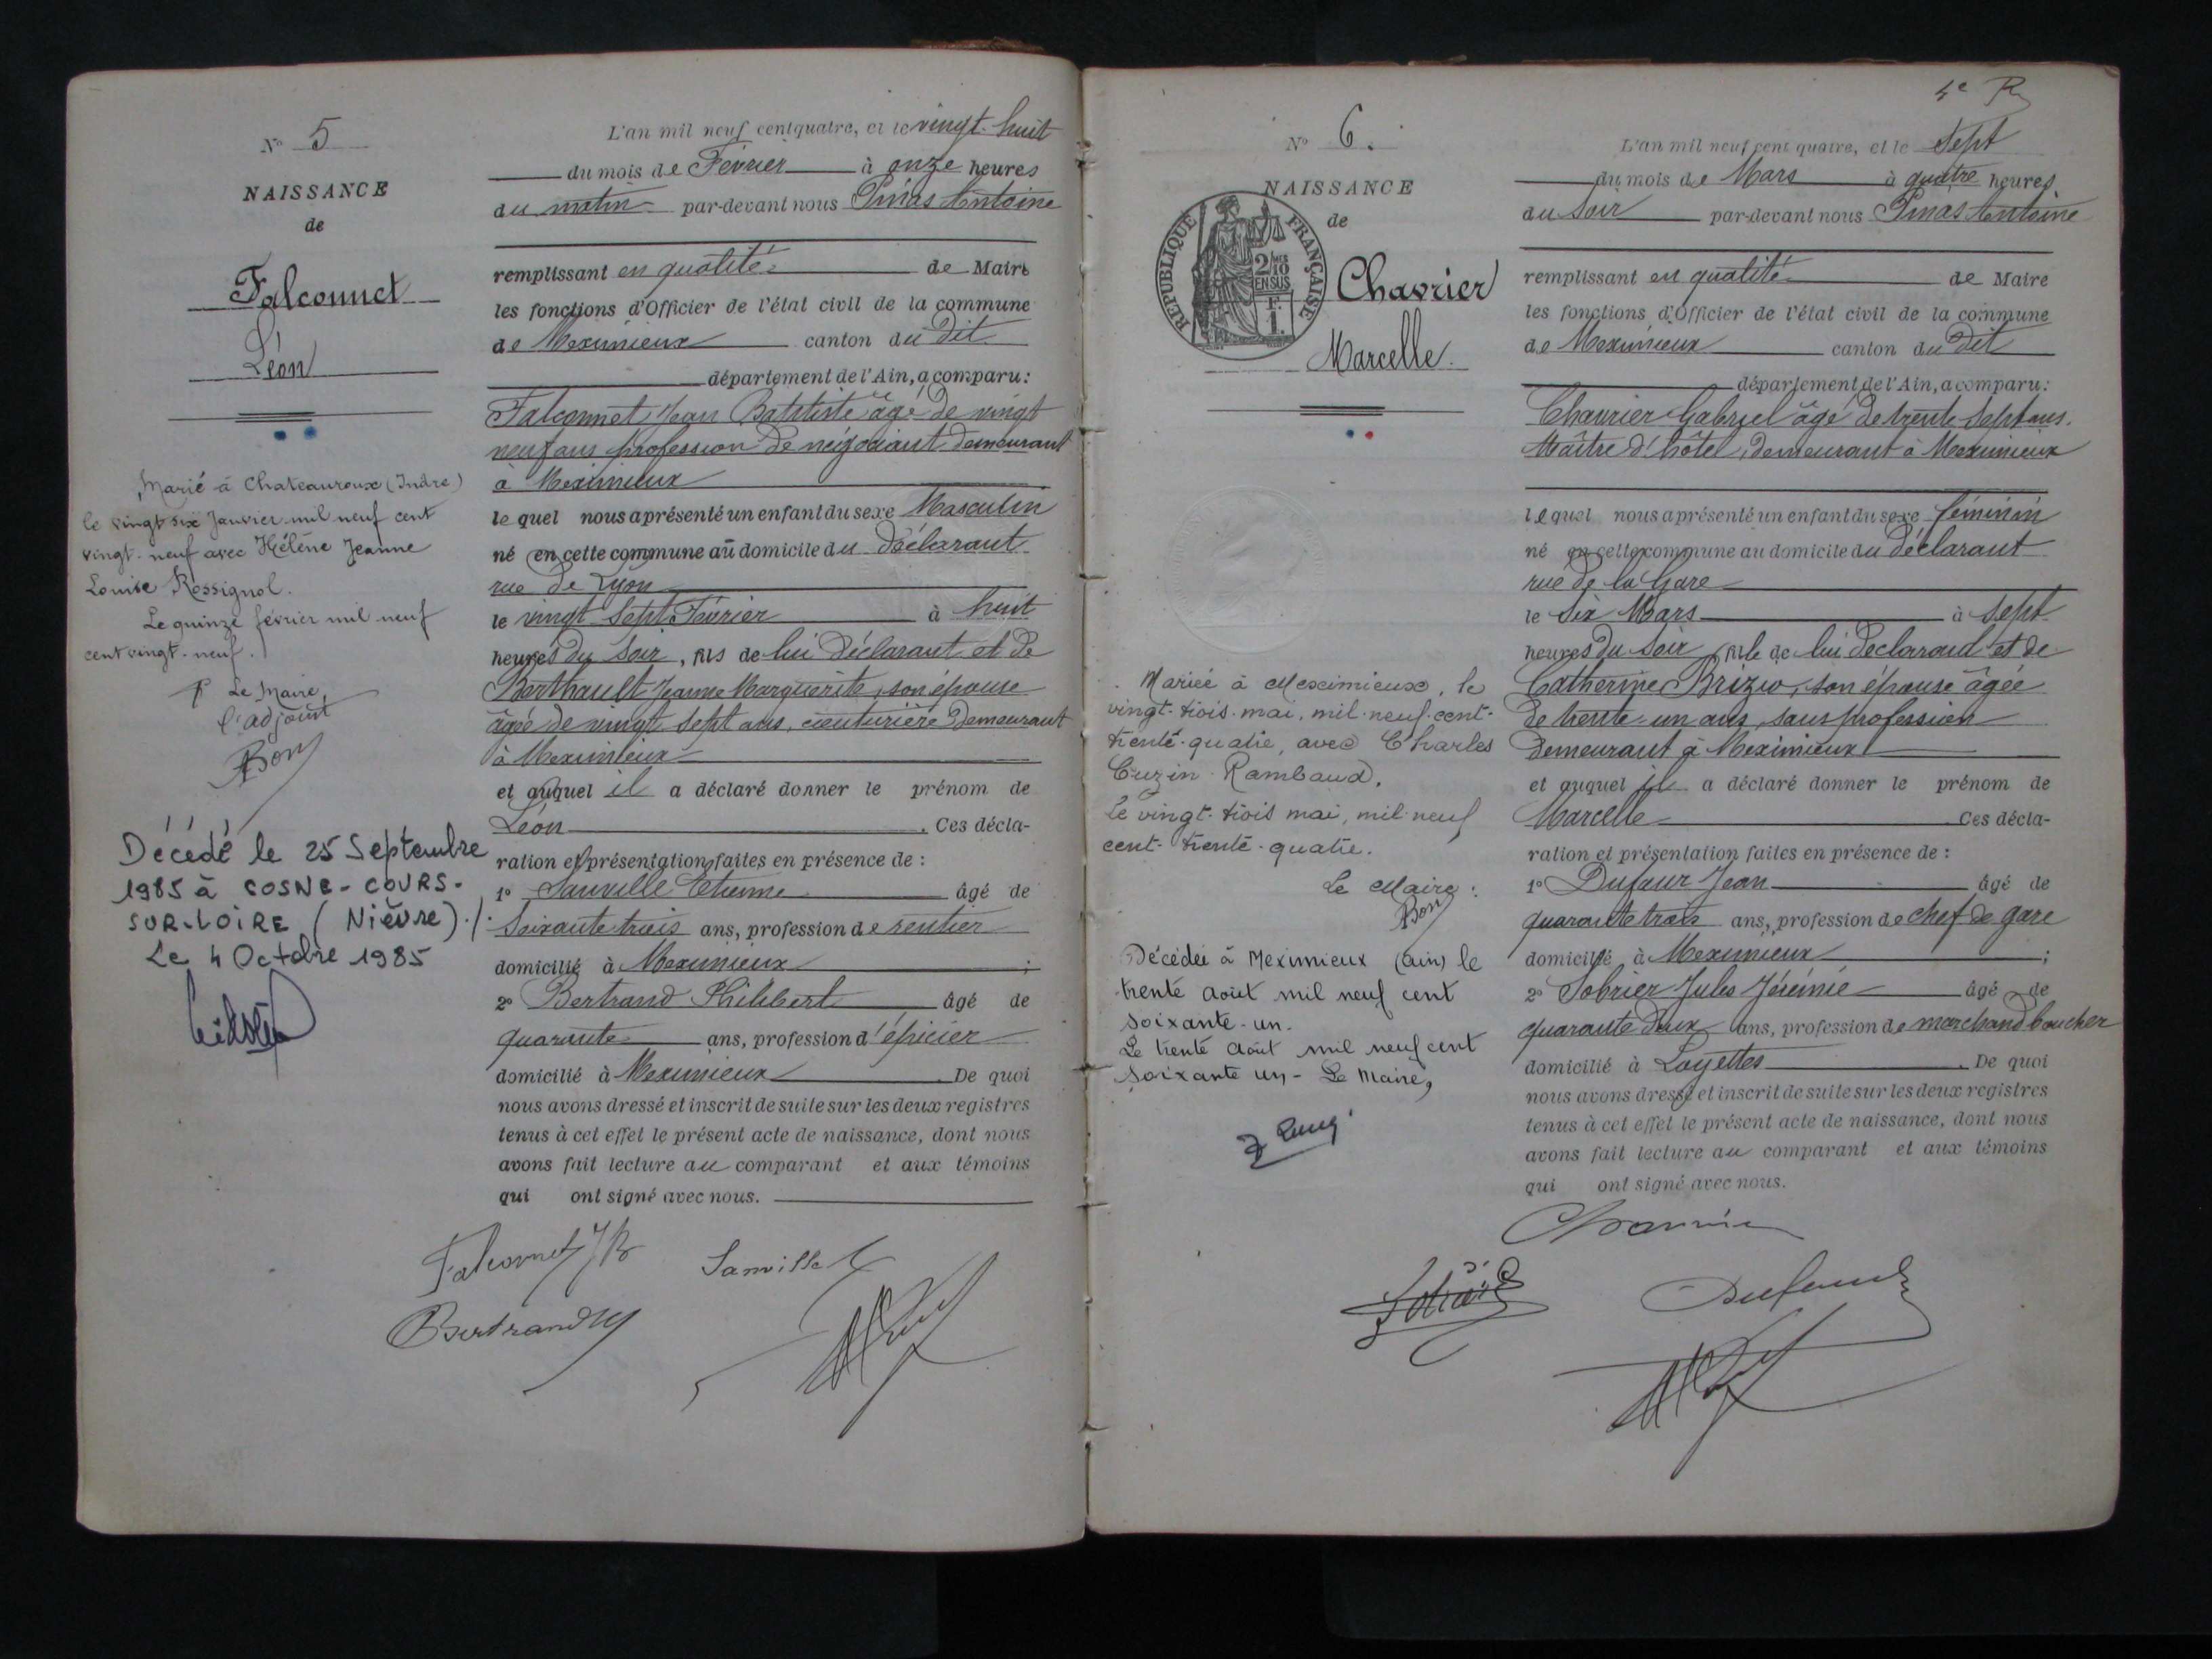 N° 5
NAISSANCE
de
Falconnet
Léon
Marié à Chateauroux (Indre)
le vingt six Janvier mil neuf cent
vingt-neuf avec Hélène Jeanne
Louise Rossignol.
Le quinze février mil neuf
cent vingt-neuf.
P Le Maire,
l'adjoint
Bon
Décédé le 25 Septembre
1985 à COSNE-COURS-
SUR-LOIRE (Nièvre)./.
Le 4 Octobre 1985
L'an mil neuf cent quatre, et le vingt-huit
du mois de Février à onze heures
du matin par-devant nous Pinas Antoine
remplissant en qualité de Maire
les fonctions d'Officier de l'état civil de la commune
de Meximieux canton du Dit
département de l'Ain, a comparu:
Falconnet Jean Batistite âgé de vingt
neuf ans profession de négociant demeurant
à Meximieux
le quel nous a présenté un enfant du sexe Masculin
né en cette commune au domicile du déclarant
rue de Lyon
le vingt Sept Février à huit
heures du Soir, fils de lui déclarant et de
Berthault Jeanne Marguerite, son épouse
âgée de vingt Sept ans, couturière demeurant
à Meximieux
et auquel il a déclaré donner le prénom de
Léon. Ces décla-
ration et présentation faites en présence de :
1° Sauville Etienne âgé de
Soixante trois ans, profession de rentier
domicilié à Meximieux ;
2° Bertrand Philibert âgé de
quarante ans, profession d'épicier
domicilié à Meximieux. De quoi
nous avons dressé et inscrit de suite sur les deux registres
tenus à cet effet le présent acte de naissance, dont nous
avons fait lecture au comparant et aux témoins
qui ont signé avec nous.
Falconnet JB Sanville
Bertrand
4e R
N° 6.
NAISSANCE
de
RÉPUBLIQUE FRANÇAISE
2/10
EN SUS
F.
1.
Chavrier
Marcelle.
Mariée à Meximieux, le
vingt-trois mai, mil-neuf-cent-
trente-quatre, avec Charles
Cuzin-Rambaud.
Le vingt-trois mai, mil-neuf
cent-trente-quatre.
Le Maire :
Bon
Décédée à Meximieux (Ain) le
trente août mil neuf cent
soixante-un.
Le trente août mil neuf cent
soixante un - Le Maire,
L'an mil neuf cent quatre, et le Sept
du mois de Mars à quatre heures
du Soir par-devant nous Pinas Antoine
remplissant en qualité de Maire
les fonctions d'Officier de l'état civil de la commune
de Meximieux canton du Dit
département de l'Ain, a comparu:
Chavrier Gabriel âgé de trente Sept ans.
Maître d'hôtel, demeurant à Meximieux
le quel nous a présenté un enfant du sexe féminin
né en cette commune au domicile du déclarant
rue de la Gare
le Six Mars à Sept
heures du Soir, fille de lui déclarand et de
Catherine Brizio, son épouse âgée
de trente-un ans, sans profession
demeurant à Meximieux
et auquel il a déclaré donner le prénom de
Marcelle Ces décla-
ration et présentation faites en présence de :
1° Dufaur Jean âgé de
quarante trois ans, profession de chef de gare
domicilié à Meximieux ;
2° Sobrier Jules Jérémie âgé de
quarante deux ans, profession de marchand boucher
domicilié à Loyettes. De quoi
nous avons dressé et inscrit de suite sur les deux registres
tenus à cet effet le présent acte de naissance, dont nous
avons fait lecture au comparant et aux témoins
qui ont signé avec nous.